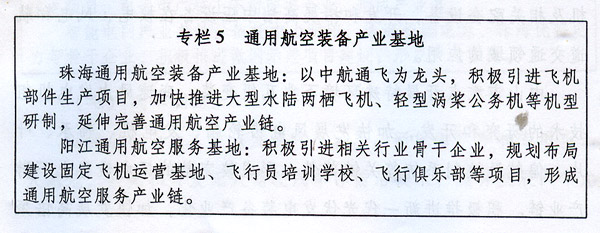 专栏5 通用航空装备产业基地
珠海通用航空装备产业基地：以中航通飞为龙头，积极引进飞机
部件生产项目，加快推进大型水陆两栖飞机、轻型涡桨公务机等机型
研制，延伸完善通用航空产业链。
阳江通用航空服务基地：积极引进相关行业骨干企业，规划布局
建设固定飞机运营基地、飞行员培训学校、飞行俱乐部等项目，形成
通用航空服务产业链。